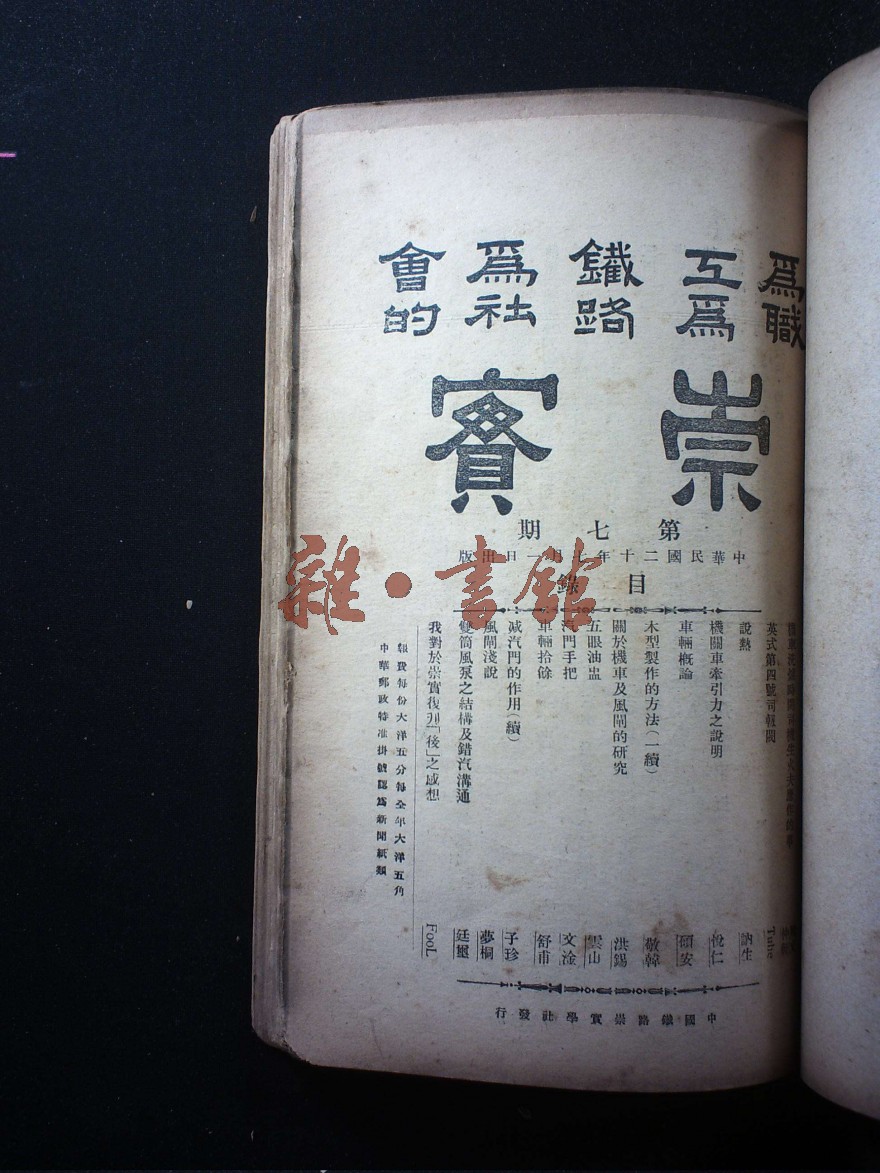 爲職
工爲
鐵路
爲社
會的
崇實
第七期
中華民國二十年七月一日出版
目錄
英式第四號司軔閥 Tulie
說熱 訥生
機關車牽引力之說明 悅仁
車輛概論 碩安
木型製作的方法(一續) 敬韓
關於機車及風閘的研究 洪錫
五眼油盅 雲山
汽門手把 文淦
車輛拾餘 舒甫
減汽門的作用(續) 子珍
風閘淺說 夢桐
雙筒風泵之結構及錯汽溝通 廷璽
我對於崇實復刋「後」之感想 FooL
報費每份大洋五分每全年大洋五角
中華郵政特准掛號認爲新聞紙類
中國鐵路崇實學社發行
雜·書館